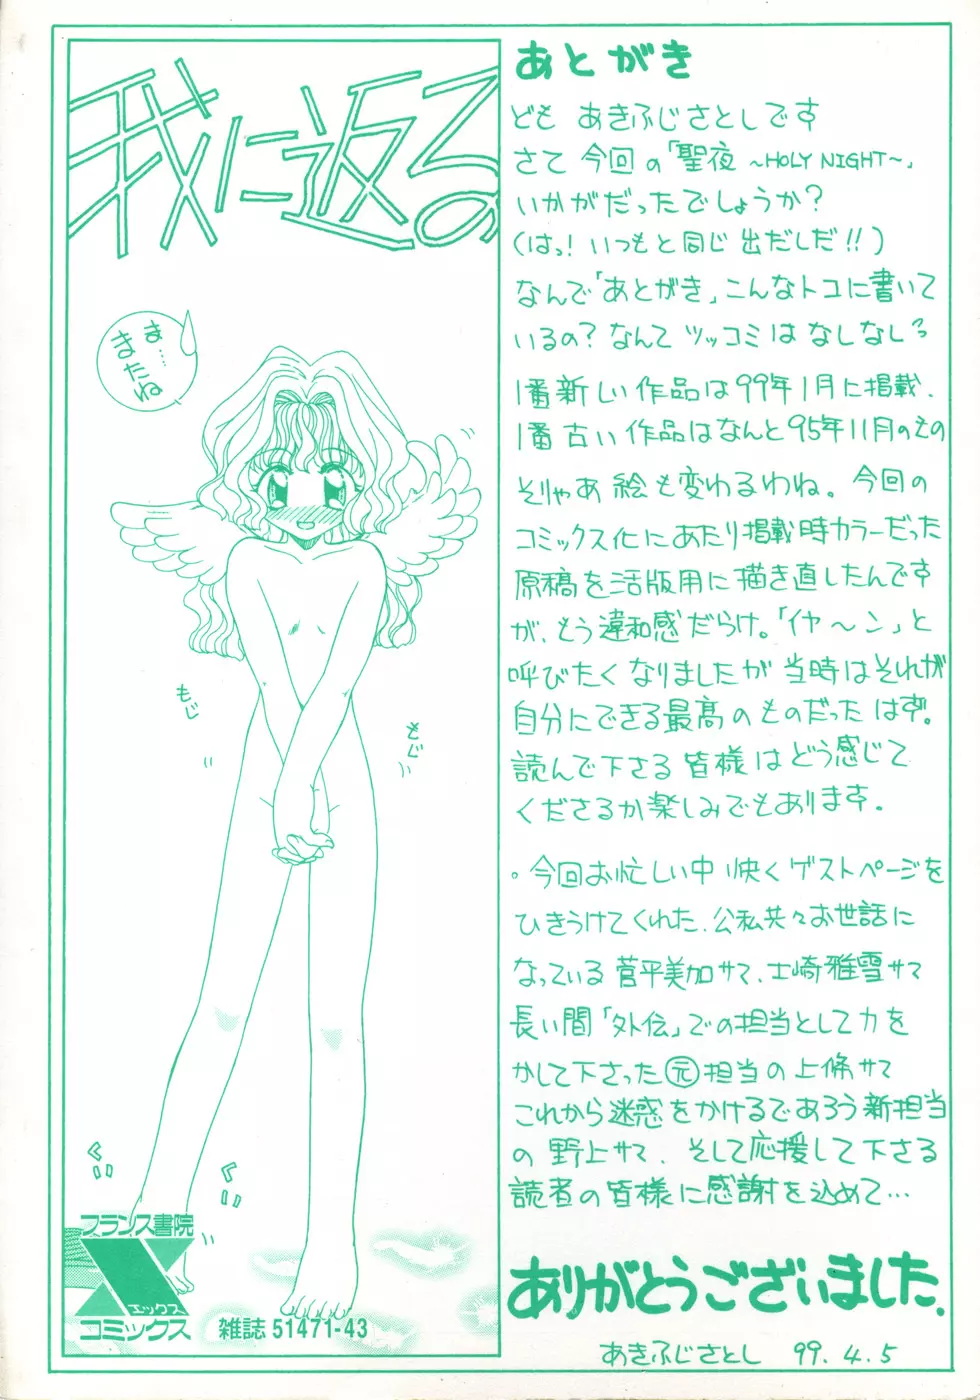 我に返る
ま…
またね
もじ
もじ
ぐい
ぐい
フランス書院
X
エックス
コミックス
雑誌 51471-43
あとがき
ども あきふじさとしです
さて 今回の「聖夜 ~HOLY NIGHT~」
いかがだったでしょうか?
(はっ! いつもと同じ 出だしだ!!)
なんで「あとがき」こんなトコに書いて
いるの? なんて ツッコミは なしなし
1番新しい作品は99年1月に掲載.
1番古い作品はなんと95年11月のもの
そりゃあ絵も変わるわね。今回の
コミックス化にあたり掲載時カラーだった
原稿を活版用に描き直したんです
が、もう違和感だらけ。「イヤ~ン」と
呼びたくなりましたが 当時はそれが
自分にできる最高のものだったはず。
読んで下さる皆様はどう感じて
くださるか楽しみでもあります。
。今回お忙しい中 快くゲストページを
ひきうけてくれた. 公私共々お世話に
なっている菅平美加サマ、士崎雅雪サマ
長い間「外伝」での担当として力を
かして下さった 元 担当の上條サマ
これから迷惑をかけるであろう新担当
の 野上サマ. そして応援して下さる
読者の皆様に感謝を込めて…
ありがとうございました.
あきふじさとし 99. 4. 5